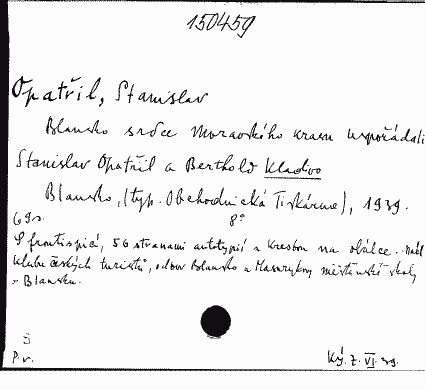 150459
Opatřil, Stanislav
Blansko srdce Moravského krasu uspořádali
Stanislav Opatřil a Berthold Kladivo
Blansko, (typ. Obchodnická Tiskárna), 1939.
69 s. 8°
S frontispicí, 56 stranami autotypií a kresbou na obálce. Nákl
klubu českých turistů, odbor Blansko a Masarykovy měšťanské školy
v Blansku.
P. v. Ký. Z. VI. 39.